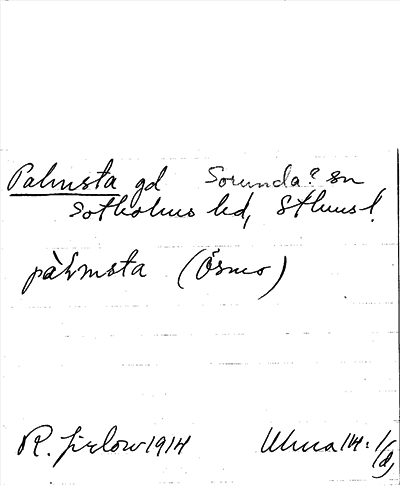 Palmsta gd Sorunda? sn
Sotholms hd, Sthms l.
pàlmsta (Ösmo)
R. Jirlow 1914